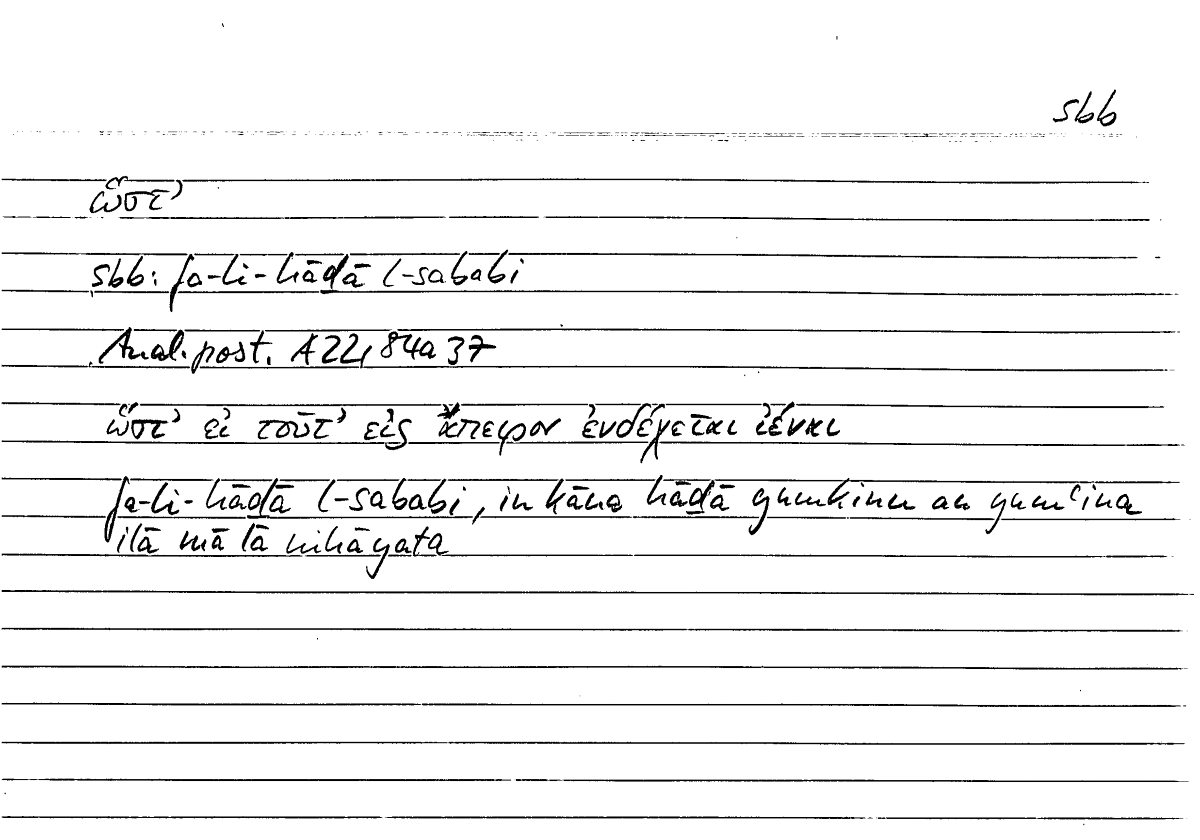 sbb
ὥστ’
sbb: fa-li-hāḏā l-sababi
Anal. post. A22, 84a37
ὥστ’ εἰ τοῦτ’ εἰς ἄπειρον ἐνδέχεται ἰέναι
fa-li-hāḏā l-sababi, in kāna hāḏā yumkinu an yumʿina
ilā mā lā nihāyata